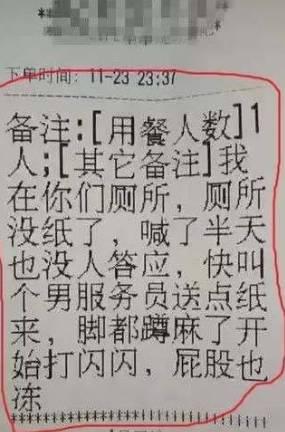 下单时间：11-23 23:37
备注:[用餐人数]1
人;[其它备注]我
在你们厕所，厕所
没纸了，喊了半天
也没人答应，快叫
个男服务员送点纸
来，脚都蹲麻了开
始打闪闪，屁股也
冻